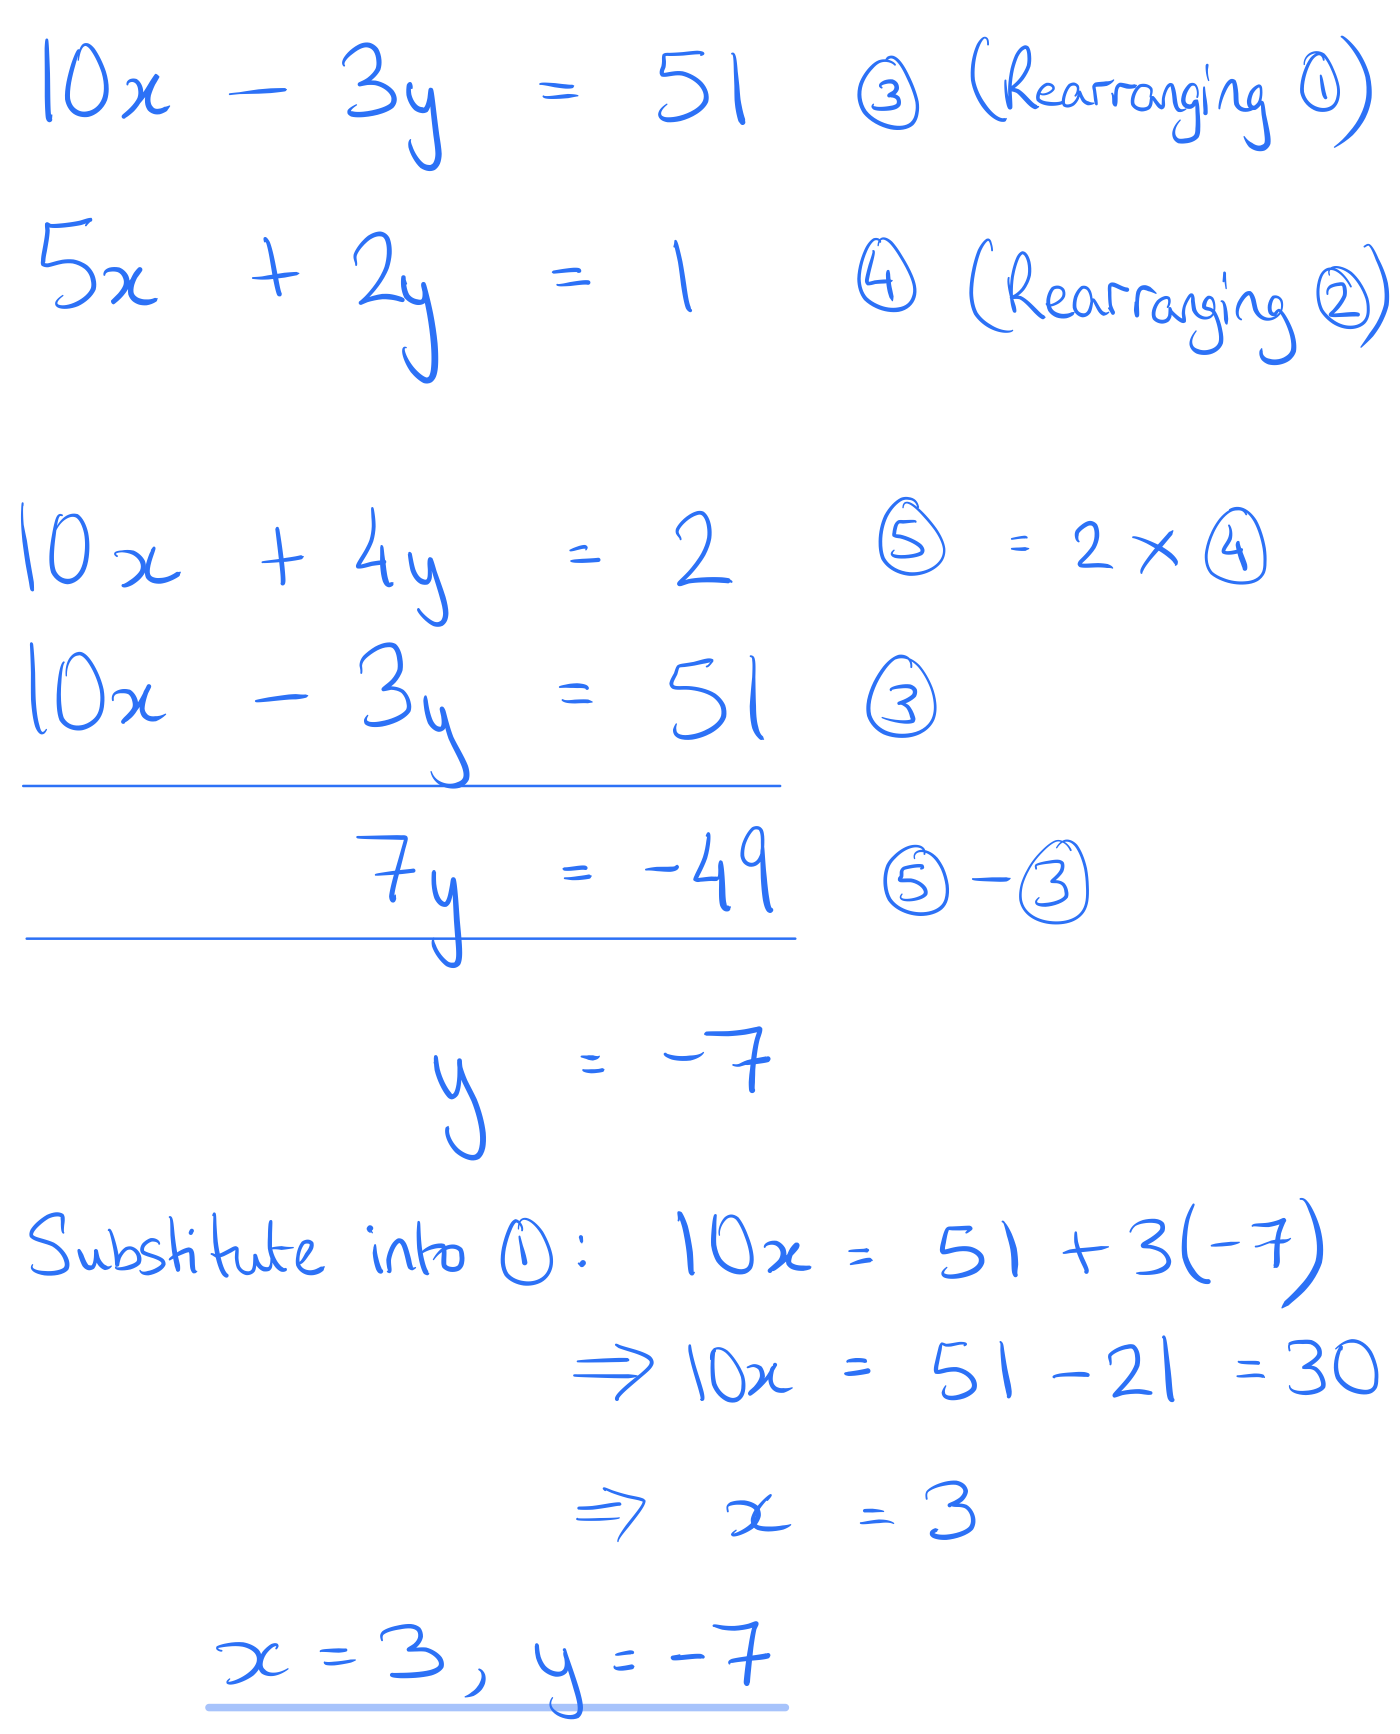 10x - 3y = 51 ③ (Rearranging ①)
5x + 2y = 1 ④ (Rearranging ②)
10x + 4y = 2 ⑤ = 2 × ④
10x - 3y = 51 ③
7y = -49 ⑤ - ③
y = -7
Substitute into ①: 10x = 51 + 3(-7)
⇒ 10x = 51 - 21 = 30
⇒ x = 3
x = 3, y = -7